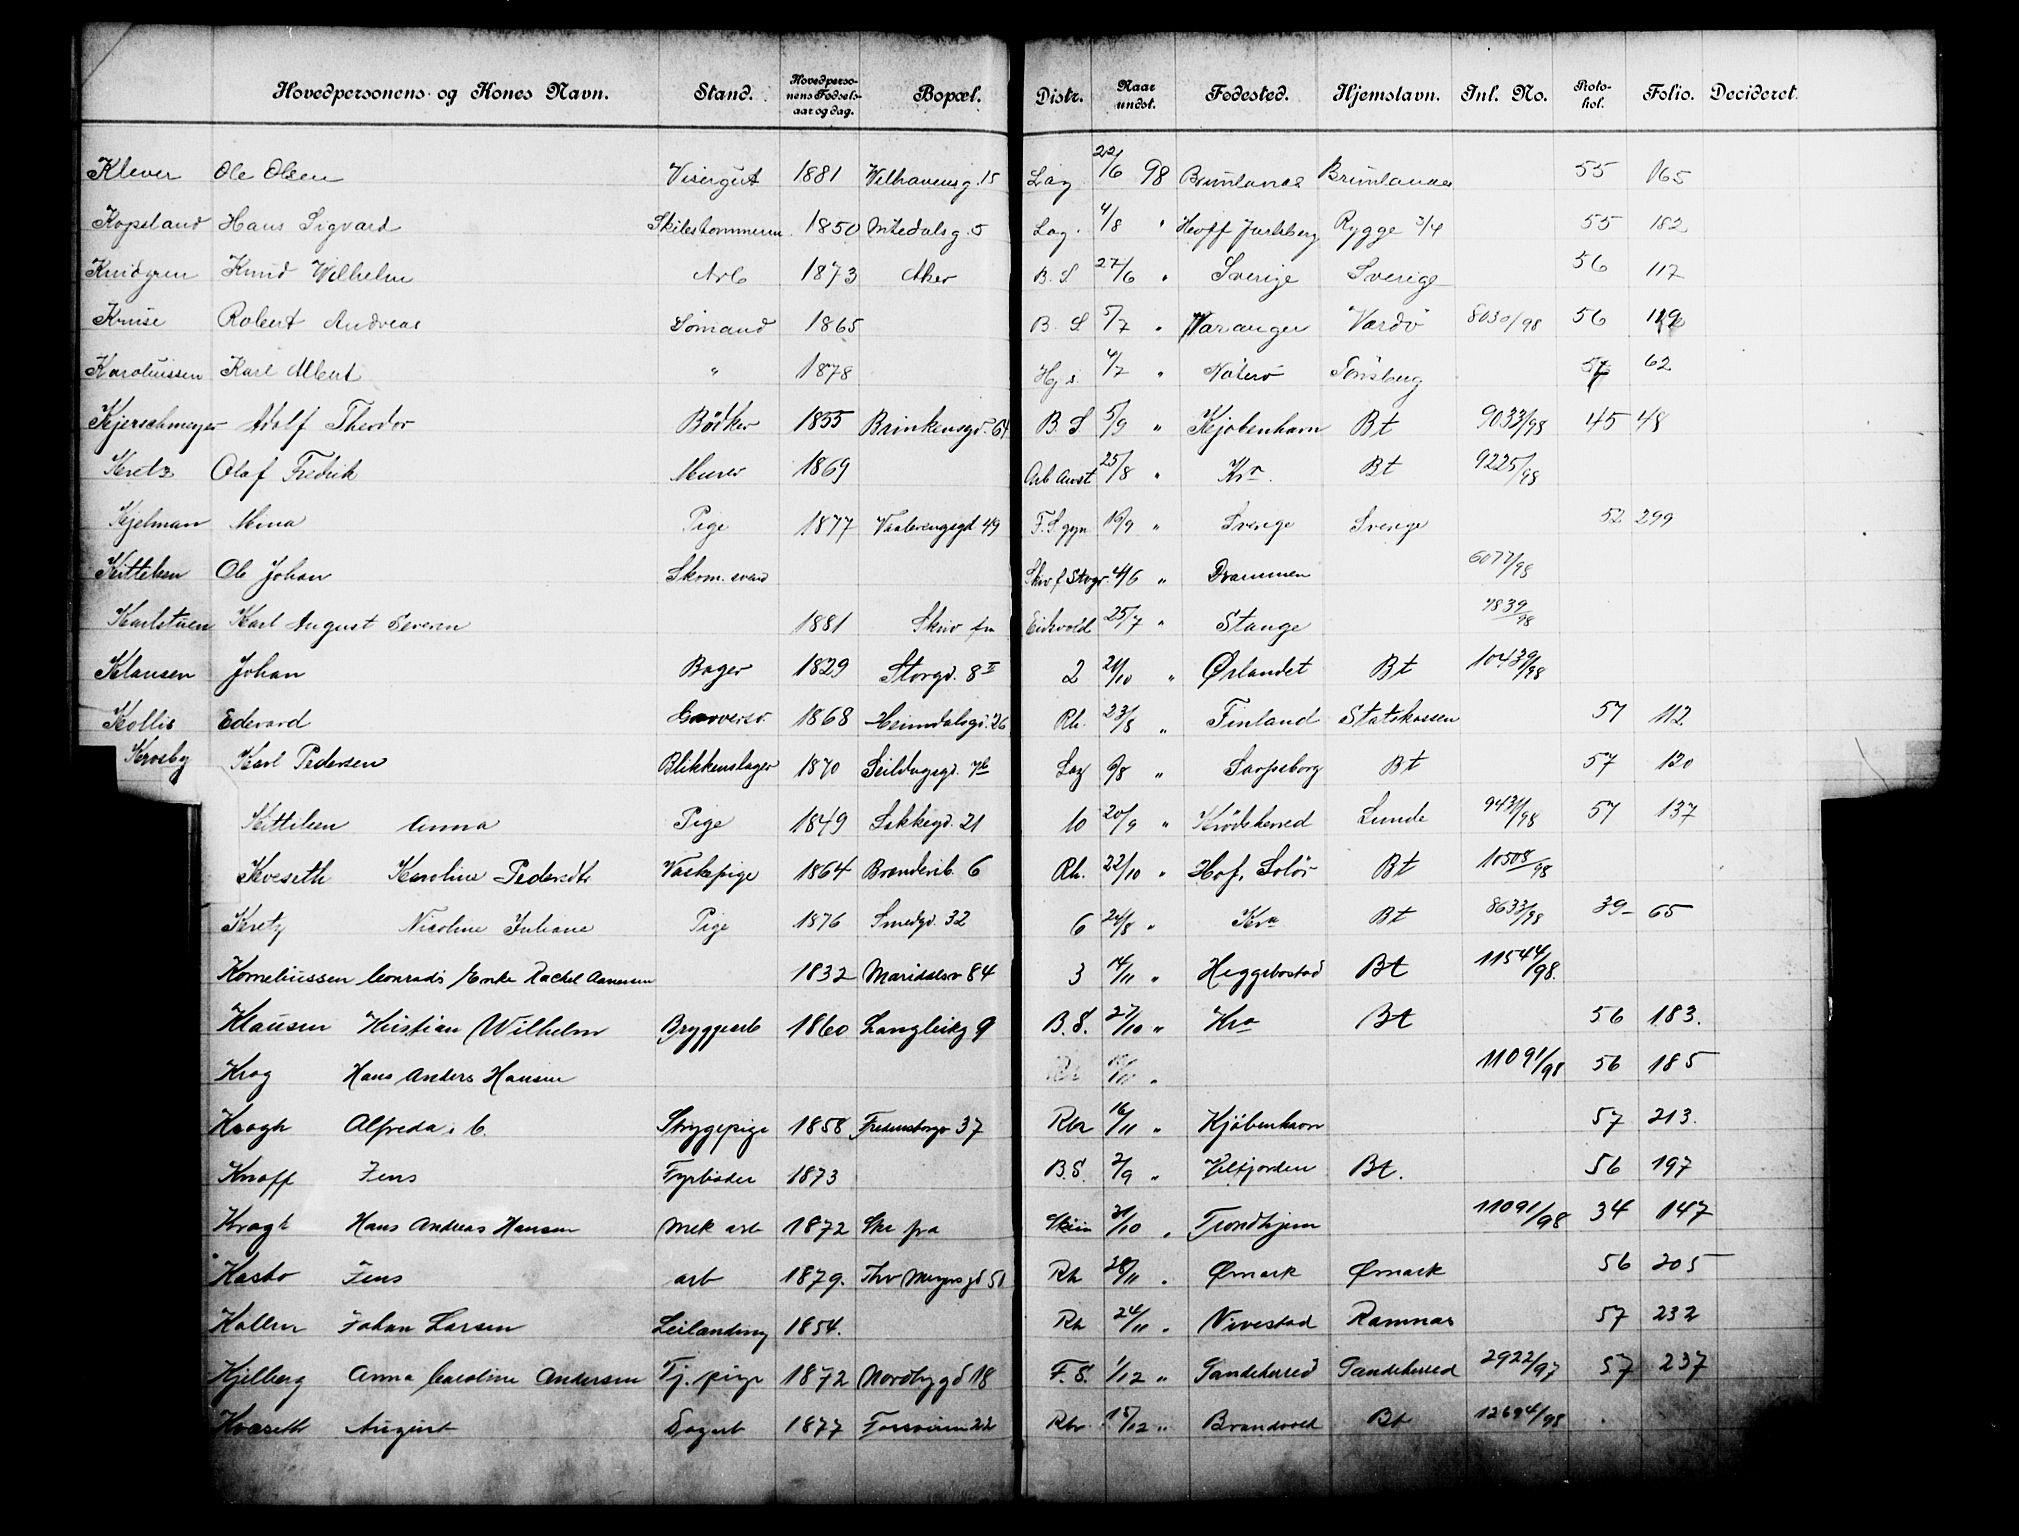 Hovedpersonens og Kones Navn. Stand. Hovedpersonens Fødselsaar og dag. Bopæl. Distr. Naar undst. Fødested. Hjemstavn. Inl. No. Protokol. Folio. Decideret.
Klever Ole Olsen Visergut 1881 Welhavensg. 15 Lag 22/6 98 Brunlanæs Brunlanæs 55 165
Kopsland Hans Sigvard 1850 5 Lag. 4/8 " Hoff Jarlsberg Rygge 3/4 55 182
Knud Wilhelm Arb 1873 Aker B. S. 27/6 " Sverige Sverige 56 117
Kruse Robert Andreas Sømand 1865 B. S. 5/7 " Varanger Vardö 8030/98 56
Karoliussen Karl Albert " 1878 Hj. s. 4/7 " Nöterö Tönsberg 57 62
Kjerschmeyer Adolf Theodor Bödker 1855 Brinkensgd. 64 B. S. 5/9 " Kjöbenhavn Bt 9033/98 45 48
Kretz Olaf Fredrik Murer 1869 Arb anst 25/8 " Kra. Bt 9225/98
Kjelman Mina Pige 1877 Vaalerengsgd 49 F. S. gyn 10/9 " Sverige Sverige 52 299
Kittilsen Ole Johan Skom. svend 4/6 " Drammen 6077/98
Karlstuen Karl August Severin 1881 Skriv fra Eidsvold 25/7 " Stange 7839/98
Klausen Johan Bager 1829 Storgd. 8 II 2 21/10 " Ørlandet Bt 10439/98
Kollis Edevard 1868 Heimdalsgd. 26 Rh. 23/8 " Finland Statskassen 57 112
Krosby Karl Pedersen Blikkenslager 1870 Seildugsgd. 7b Lag 6/8 " Sarpsborg Bt 57 120
Kittilsen Anna Pige 1849 Lakkegd. 21 10 20/9 " Krödsherred Lunde 9431/98 57 137
Kveseth Karoline Pedersdtr Vaskepige 1864 6 Rh. 22/10 " Hof, Solör Bt 10508/98
Kretz Nicoline Juliane Pige 1876 Smedgd. 32 6 24/8 " Kra Bt 8633/98 39 - 65
Korneliussen Conrads Enke Rachel Aanensen 1832 Maridalsv 84 3 14/11 " Heggebostad Bt 11544/98.
Klausen Kristian Wilhelm Bryggearb 1860 Langleikg 9 B. S. 27/10 " Kra Bt 56 183.
Krog Hans Anders Hansen " 11091/98 56 185
Krogh Alfreda. C. Strygepige 1858 Fredensborgv 37 Rh 16/11 " Kjöbenhavn 57 213.
Knoff Jens Fyrböder 1873 B. S. 2/9 " Velfjorden Bt. 56 197
Krogh Hans Andreas Hansen Mek arb 1872 Skr fra Skien 31/10 " Trondhjem 11091/98 34 147
Kasbo Jens arb 1879. Thv Meyers gd 51 Rh 28/11 " Ømark Ømark 56 205
Kollen Johan Larsen Leilænding 1854. Rh 24/11 " Vivestad Ramnæs 57 232
Kjelberg Anna Caroline Andersen Tj. pige 1872 Nordbygd 18 F. S. 1/12 " Sandeherred Sandeherred 2922/97 57 237
Kvæseth August Dagarb 1877 22 Rh 15/12 " Brandvold Bt 12694/98